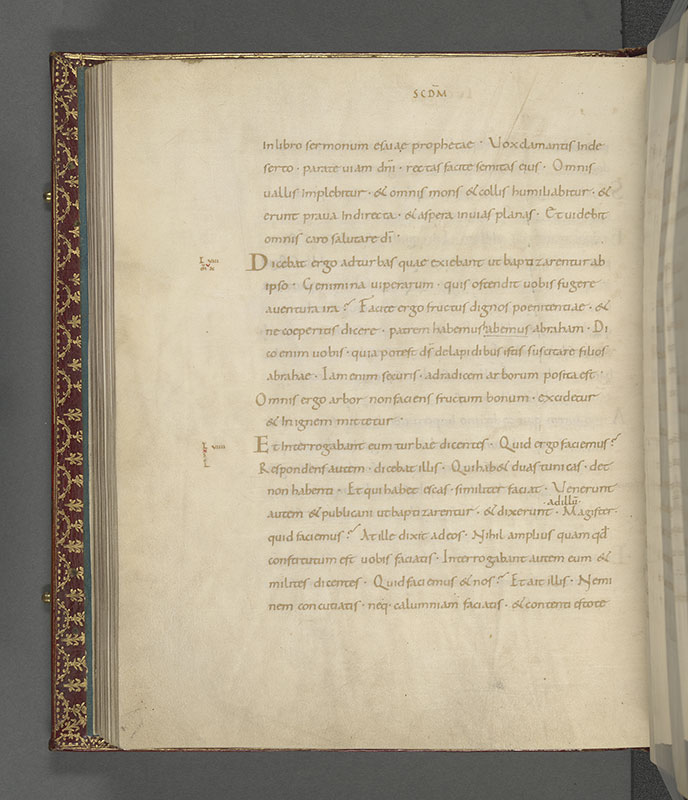 SCDM̄
In libro sermonum esaiae prophetae · Vox clamantis In de
serto · parate uiam dn̄i · rectas facite semitas eius · Omnis
uallis Implebitur · & omnis mons & collis humiliabitur · &
erunt praua In directa · & aspera in uias planas · Et uidebit
omnis caro salutare dī ·
Dicebat ergo ad turbas quae exiebant ut baptizarentur ab
ipso · Genimina uiperarum · quis ostendit uobis fugere
a uentura ira? Facite ergo fructus dignos poenitentiae · &
ne coeperitis dicere · patrem habemus habemus abraham · Di
co enim uobis · quia potest ds̄ de lapidibus istis suscitare filios
abrahae · Iam enim securis · ad radicem arborum posita est ·
Omnis ergo arbor non faciens fructum bonum · excidetur
& In ignem mittetur ·
Et Interrogabant eum turbae dicentes · Quid ergo faciemus?
Respondens autem · dicebat illis · Qui hab& duas tunicas · det
non habenti · Et qui habet escas · similiter faciat · Venerunt
autem & publicani ut baptizarentur · & dixerunt · ad illū · Magister ·
quid faciemus? At ille dixit ad eos · Nihil amplius quam qd̄
constitutum est uobis faciatis · Interrogabant autem eum &
milites dicentes · Quid faciemus & nos? Et ait illis · Nemi
nem concutiatis · neq· calumniam faciatis · & contenti estote